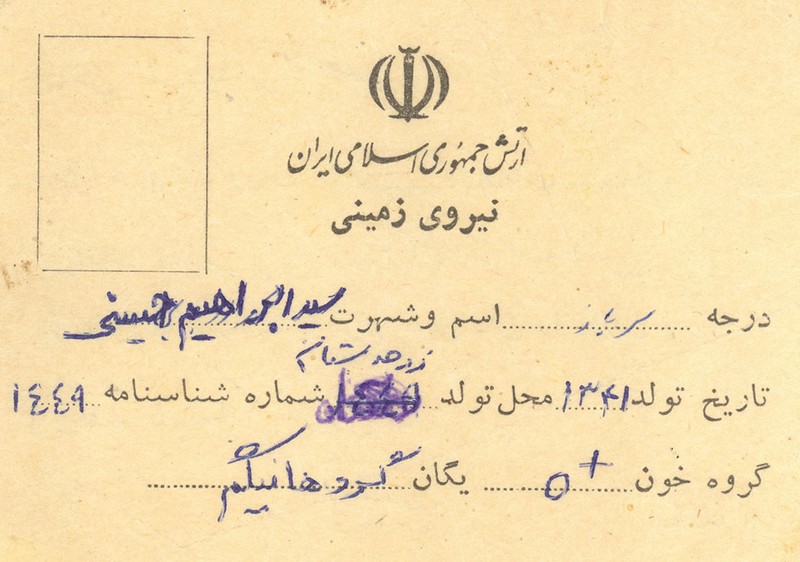 ارتش جمهوری اسلامی ایران
نیروی زمینی
درجه سرباز اسم و شهرت سید ابراهیم حسینی
تاریخ تولد ۱۳۴۱ محل تولد شماره شناسنامه ۱۴۴۹
گروه خون O+ یگان گروهان یکم